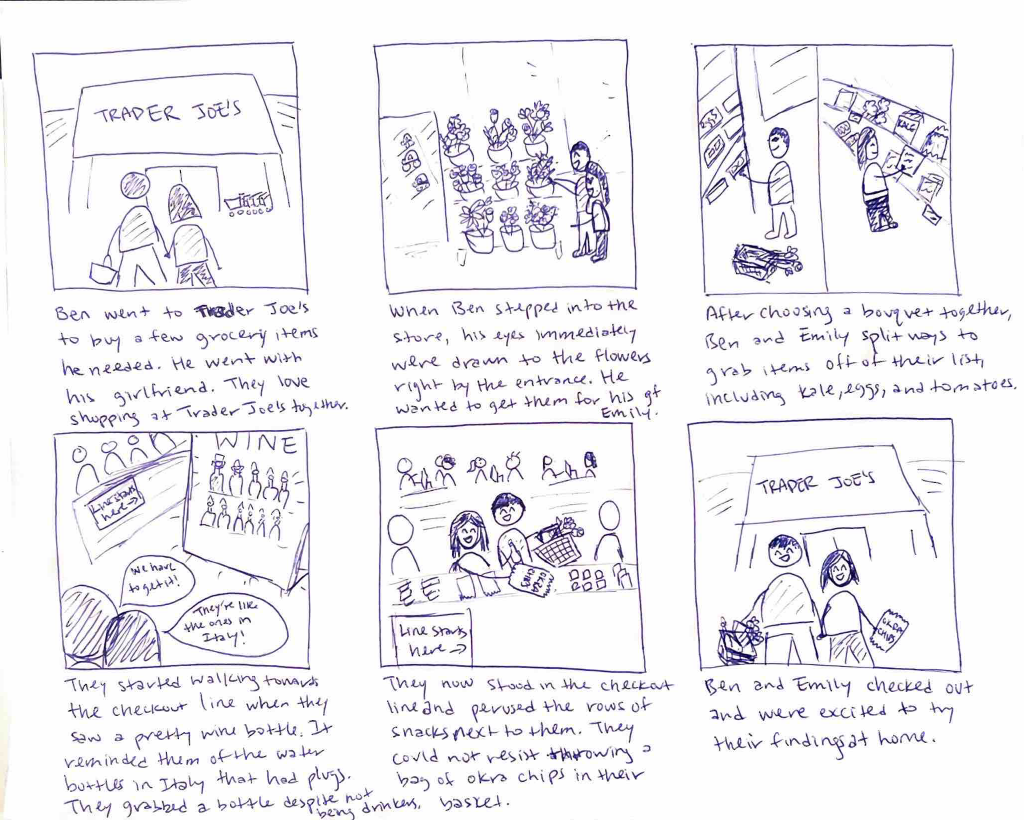 TRADER JOE'S
Ben went to Trader Joe's
to buy a few grocery items
he needed. He went with
his girlfriend. They love
shopping at Trader Joe's together.
When Ben stepped into the
store, his eyes immediately
were drawn to the flowers
right by the entrance. He
wanted to get them for his gf
Emily.
KALE
After choosing a bouquet together,
Ben and Emily split ways to
grab items off of their list,
including kale, eggs, and tomatoes.
WINE
Line starts
here →
We have
to get it!
They're like
the ones in
Italy!
They started walking towards
the checkout line when they
saw a pretty wine bottle. It
reminded them of the water
bottles in Italy that had plugs.
They grabbed a bottle despite not
being drinkers.
OKRA
CHIPS
Line starts
here →
They now stood in the checkout
line and perused the rows of
snacks next to them. They
could not resist throwing a
bag of okra chips in their
basket.
TRADER JOE'S
OKRA
CHIPS
Ben and Emily checked out
and were excited to try
their findings at home.